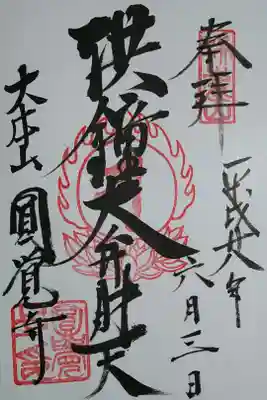 奉拝
平成廿年六月三日
洪鐘大弁財天
大本山
圓覺寺